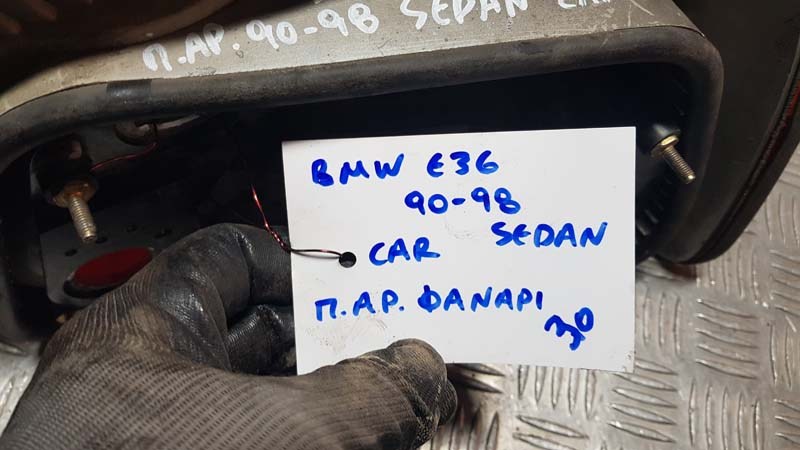 Π.ΑΡ. 90-98 SEDAN CAR
BMW E36
90-98
SEDAN
CAR
Π.ΑΡ. ΦΑΝΑΡΙ
30